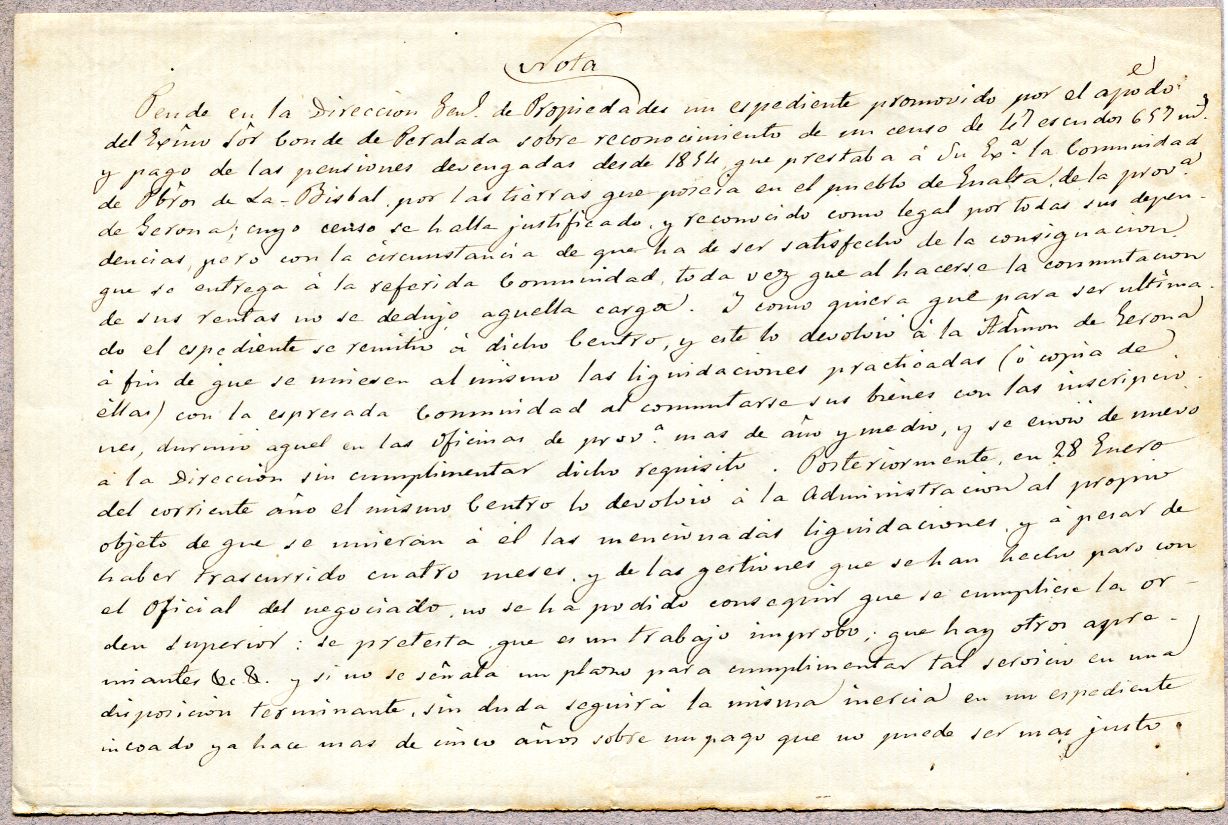 Nota
Pende en la Direccion Gen.l de Propiedades un espediente promovido por el apodo
del Exmo Sôr Conde de Peralada sobre reconocimiento de un censo de 47 escudos 657 m.s
y pago de las pensiones devengadas desde 1854, que prestaba á Su Ex.a la Comunidad
de Pbros de La-Bisbal, por las tierras que poseia en el pueblo de de la prov.a
de Gerona; cuyo censo se halla justificado, y reconocido como legal por todas sus depen-
dencias, pero con la circunstancia de que ha de ser satisfecho de la consignacion
que se entrega á la referida Comunidad, toda vez que al hacerse la conmutacion
de sus rentas no se dedujo aquella carga. Y como quiera que para ser ultima-
do el espediente se remitió á dicho Centro, y este lo devolvió á la Admon de Gerona
á fin de que se uniesen al mismo las liquidaciones practicadas (ó copia de
ellas) con la espresada Comunidad al conmutarse sus bienes con las inscripcio-
nes, durmió aquel en las oficinas de prov.a mas de año y medio, y se envió de nuevo
á la Direccion sin cumplimentar dicho requisito. Posteriormente, en 28 Enero
del corriente año el mismo Centro lo devolvió á la Administracion al propio
objeto de que se unieran á él las mencionadas liquidaciones, y á pesar de
haber trascurrido cuatro meses, y de las gestiones que se han hecho para con
el Oficial del negociado, no se ha podido conseguir que se cumpliese la or-
den superior: se pretesta que es un trabajo improbo; que hay otros apre-
miantes &c &. y si no se señala un plazo para cumplimentar tal servicio en una
disposicion terminante, sin duda seguirá la misma inercia en un espediente
incoado ya hace mas de cinco años sobre un pago que no puede ser mas justo.